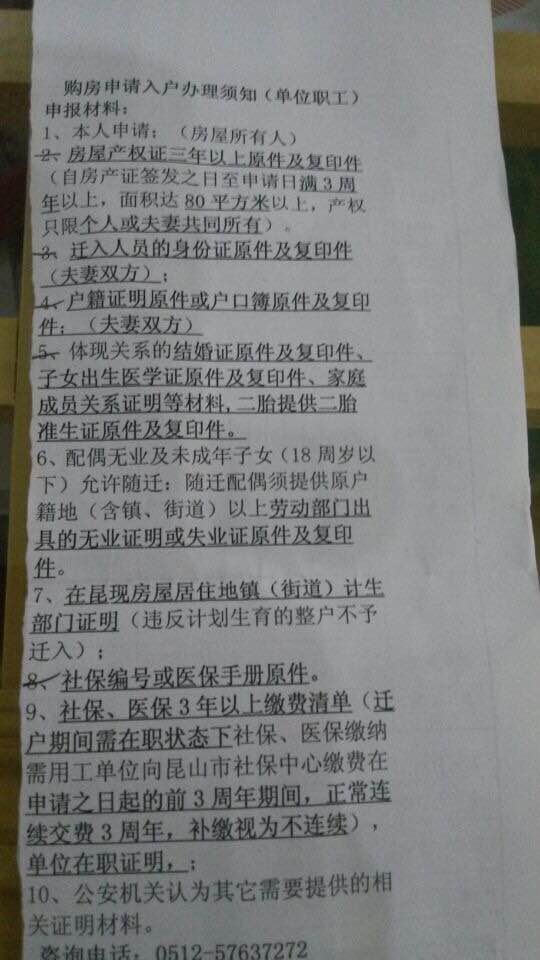 购房申请入户办理须知（单位职工）
申报材料：
1、本人申请；（房屋所有人）
2、房屋产权证三年以上原件及复印件
（自房产证签发之日至申请日满3周
年以上，面积达80平方米以上，产权
只限个人或夫妻共同所有）。
3、迁入人员的身份证原件及复印件
（夫妻双方）；
4、户籍证明原件或户口簿原件及复印
件；（夫妻双方）
5、体现关系的结婚证原件及复印件、
子女出生医学证原件及复印件、家庭
成员关系证明等材料,二胎提供二胎
准生证原件及复印件。
6、配偶无业及未成年子女（18周岁以
下）允许随迁；随迁配偶须提供原户
籍地（含镇、街道）以上劳动部门出
具的无业证明或失业证原件及复印
件。
7、在昆现房屋居住地镇（街道）计生
部门证明（违反计划生育的整户不予
迁入）；
8、社保编号或医保手册原件。
9、社保、医保3年以上缴费清单（迁
户期间需在职状态下社保、医保缴纳
需用工单位向昆山市社保中心缴费在
申请之日起的前3周年期间，正常连
续交费3周年，补缴视为不连续），
单位在职证明，；
10、公安机关认为其它需要提供的相
关证明材料。
咨询电话：0512-57637272